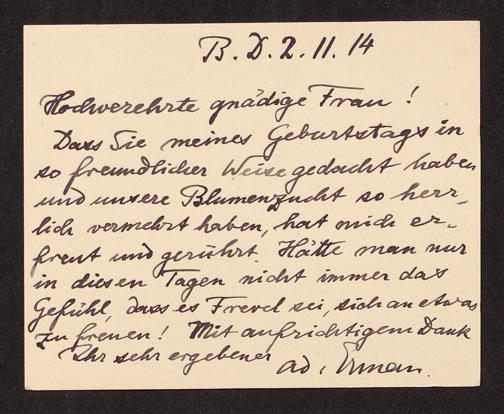 B. D. 2. 11. 14
Hochverehrte gnädige Frau !
Dass Sie meines Geburtstags in
so freundlicher Weise gedacht haben
und unsere Blumenzucht so herr-
lich vermehrt haben, hat mich er-
freut und gerührt. Hätte man nur
in diesen Tagen nicht immer das
Gefühl, dass es Frevel sei, sich an etwas
zu freuen! Mit aufrichtigem Dank
Ihr sehr ergebener
Ad. Erman.